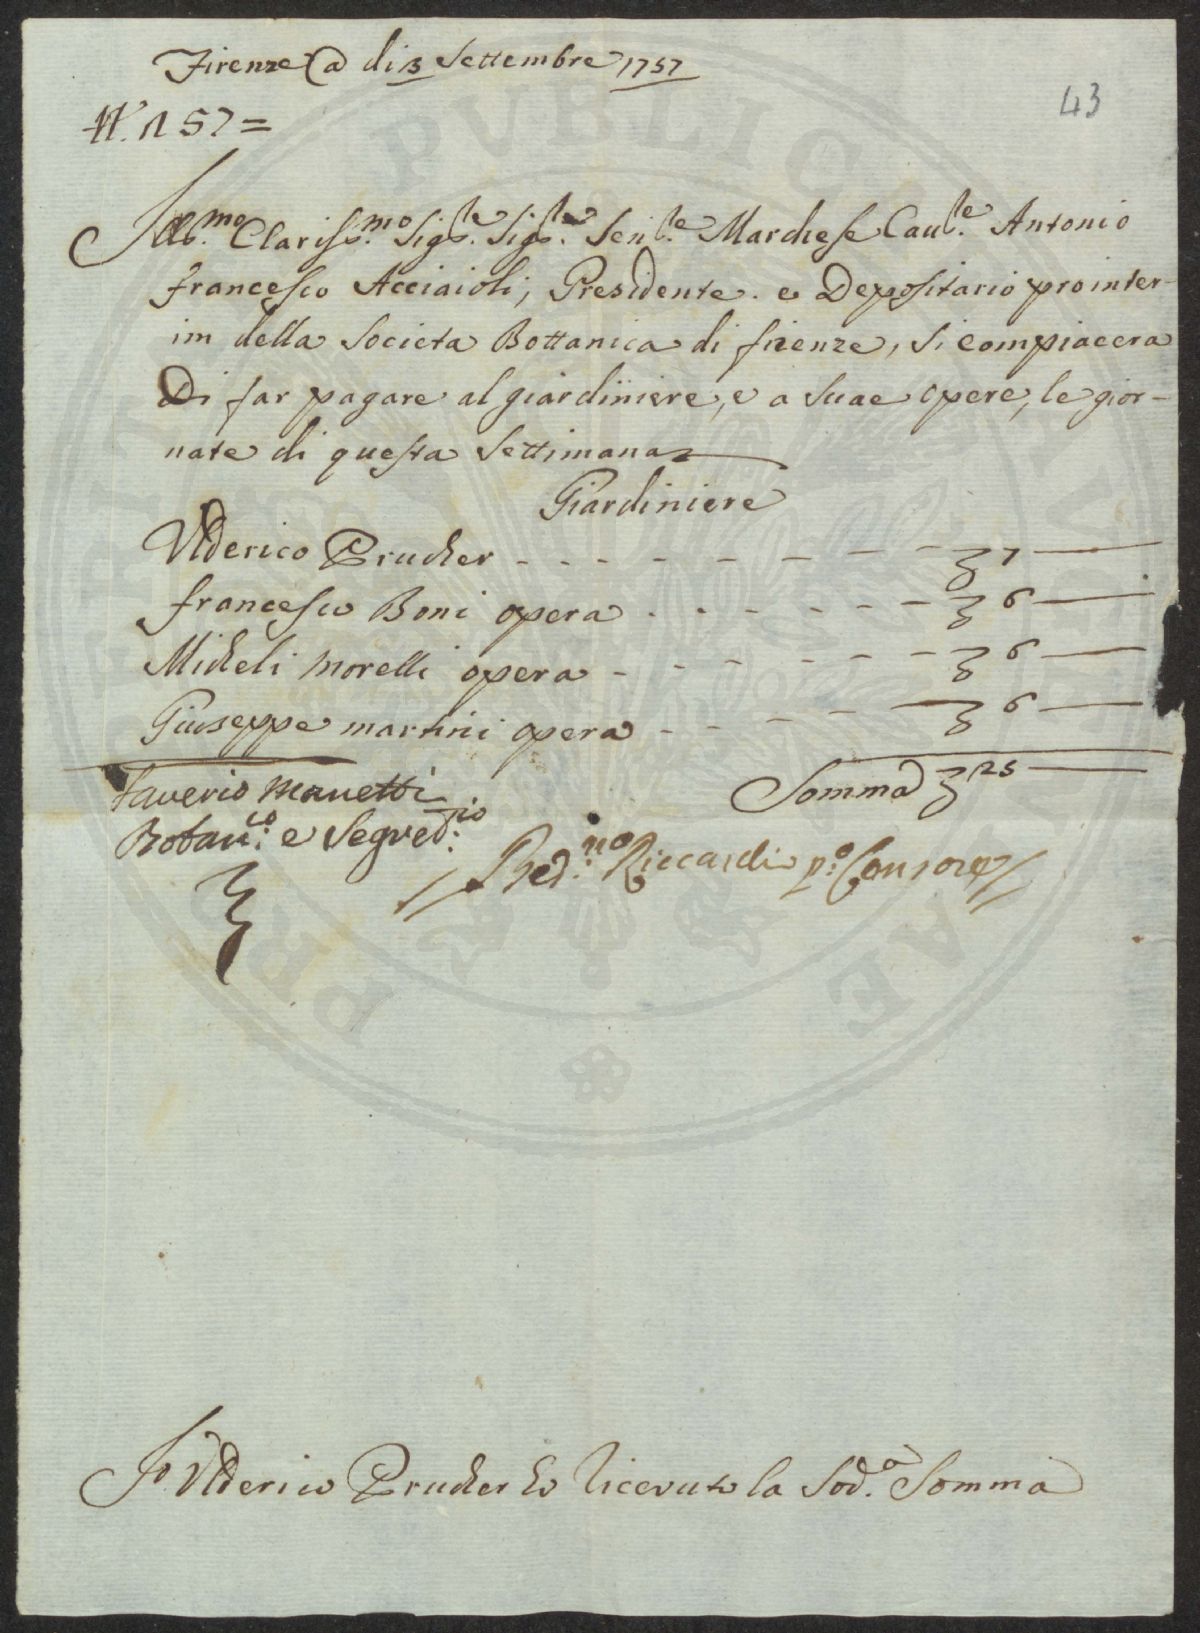 Firenze a di 3 Settembre 1757
43
N. 157 =
Ill.mo Clariss.mo Sig.re Sig.re Sen.re Marchese Cau.re Antonio
francesco Acciaioli, Presidente. e Depositario prointer-
im della Societa Bottanica di firenze, si compiacera
Di far pagare al giardiniere, e a suae opere, le gior-
nate di questa Settimana
Giardiniere
Vlderico Prucher - - - - - - - - 7 —
francesco Boni opera - - - - - - 6 —
Micheli Morelli opera - - - - - - 6 —
Giuseppe martini opera - - - - - 6 —
Somma 25 —
Saverio Manetti
Botan.co e Segred.rio
Bed.no Riccardi p.o Consore
Io Vlderico Prucher ho riceuuto la Sod.a Somma